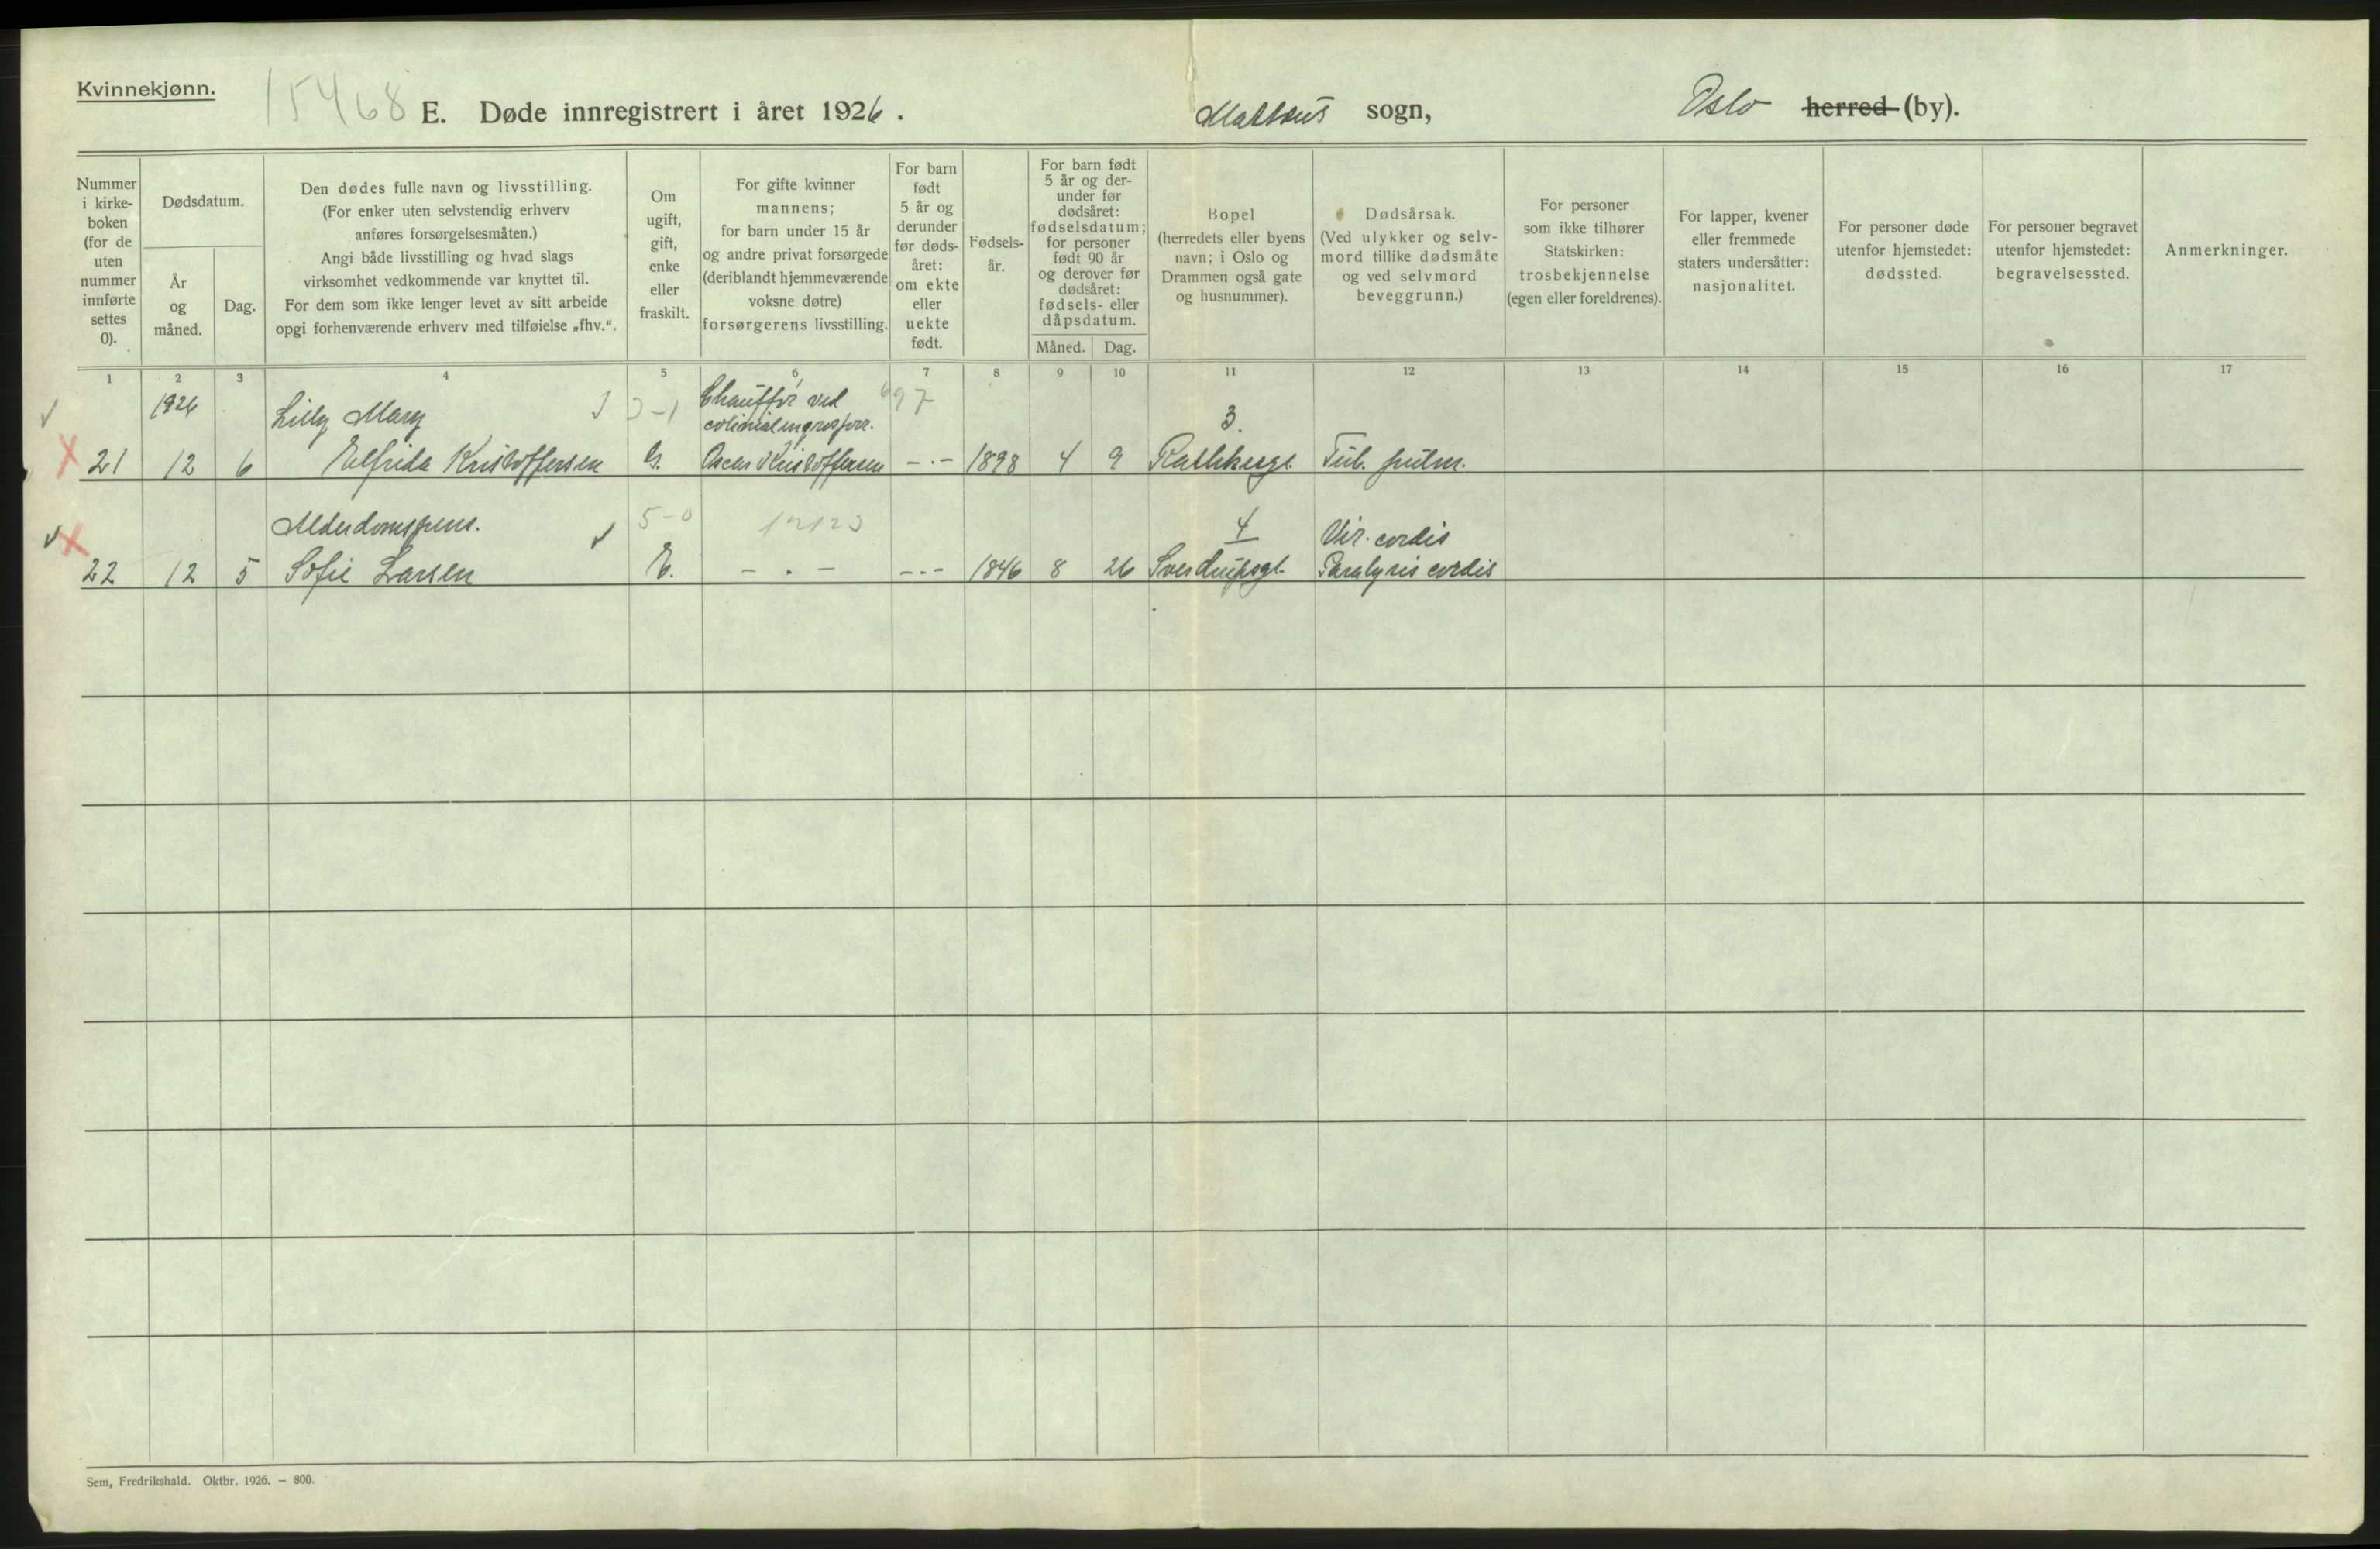 Kvinnekjønn.
15468
E. Døde innregistrert i året 1926.
Mattæus sogn,
Oslo herred (by).
Nummer
i kirke-
boken
(for de
uten
nummer
innførte
settes
0).
Dødsdatum.
År
og
måned.
Dag.
Den dødes fulle navn og livsstilling.
(For enker uten selvstendig erhverv
anføres forsørgelsesmåten.)
Angi både livsstilling og hvad slags
virksomhet vedkommende var knyttet til.
For dem som ikke lenger levet av sitt arbeide
opgi forhenværende erhverv med tilføielse „fhv.“.
Om
ugift,
gift,
enke
eller
fraskilt.
For gifte kvinner
mannens;
for barn under 15 år
og andre privat forsørgede
(deriblandt hjemmeværende
voksne døtre)
forsørgerens livsstilling.
For barn
født
5 år og
derunder
før døds-
året:
om ekte
eller
uekte
født.
Fødsels-
år.
For barn født
5 år og der-
under før
dødsåret:
fødselsdatum;
for personer
født 90 år
og derover før
dødsåret:
fødsels- eller
dåpsdatum.
Måned. Dag.
Bopel
(herredets eller byens
navn; i Oslo og
Drammen også gate
og husnummer).
Dødsårsak.
(Ved ulykker og selv-
mord tillike dødsmåte
og ved selvmord
beveggrunn.)
For personer
som ikke tilhører
Statskirken:
trosbekjennelse
(egen eller foreldrenes).
For lapper, kvener
eller fremmede
staters undersåtter:
nasjonalitet.
For personer døde
utenfor hjemstedet:
dødssted.
For personer begravet
utenfor hjemstedet:
begravelsessted.
Anmerkninger.
1 2 3 4 5 6 7 8 9 10 11 12 13 14 15 16 17
1926 Lilly Mary Chauffør ved 697
3.
21 12 6 Elfrida Kristoffersen G. Oscar Kristoffersen - . - 1898 4 9 Rathkesgt. Tub. pulm.
Alderdomspens. 5-0 4 Vit. cordis
22 12 5 Sofie Larsen E. - . - - . - 1846 8 26 Sverdrupsgt. Paralysis cordis
Sem, Fredrikshald. Oktbr. 1926. — 800.